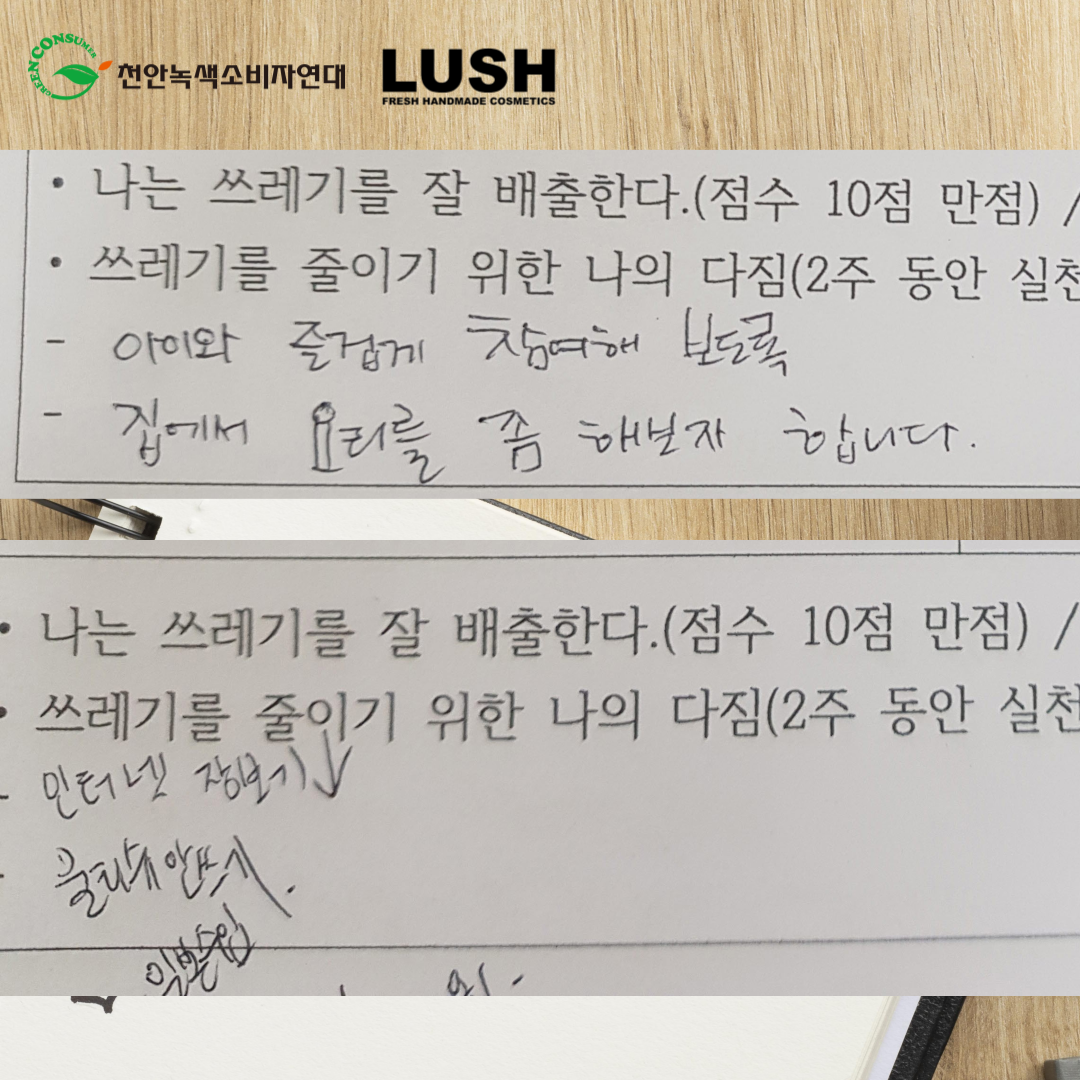 GREEN CONSUMER
천안녹색소비자연대
LUSH
FRESH HANDMADE COSMETICS
• 나는 쓰레기를 잘 배출한다.(점수 10점 만점) /
• 쓰레기를 줄이기 위한 나의 다짐(2주 동안 실천
- 아이와 즐겁게 참여해 보도록
- 집에서 요리를 좀 해보자 합니다.
• 나는 쓰레기를 잘 배출한다.(점수 10점 만점) /
• 쓰레기를 줄이기 위한 나의 다짐(2주 동안 실천
- 인터넷 장보기↓
- 물티슈 안쓰기.